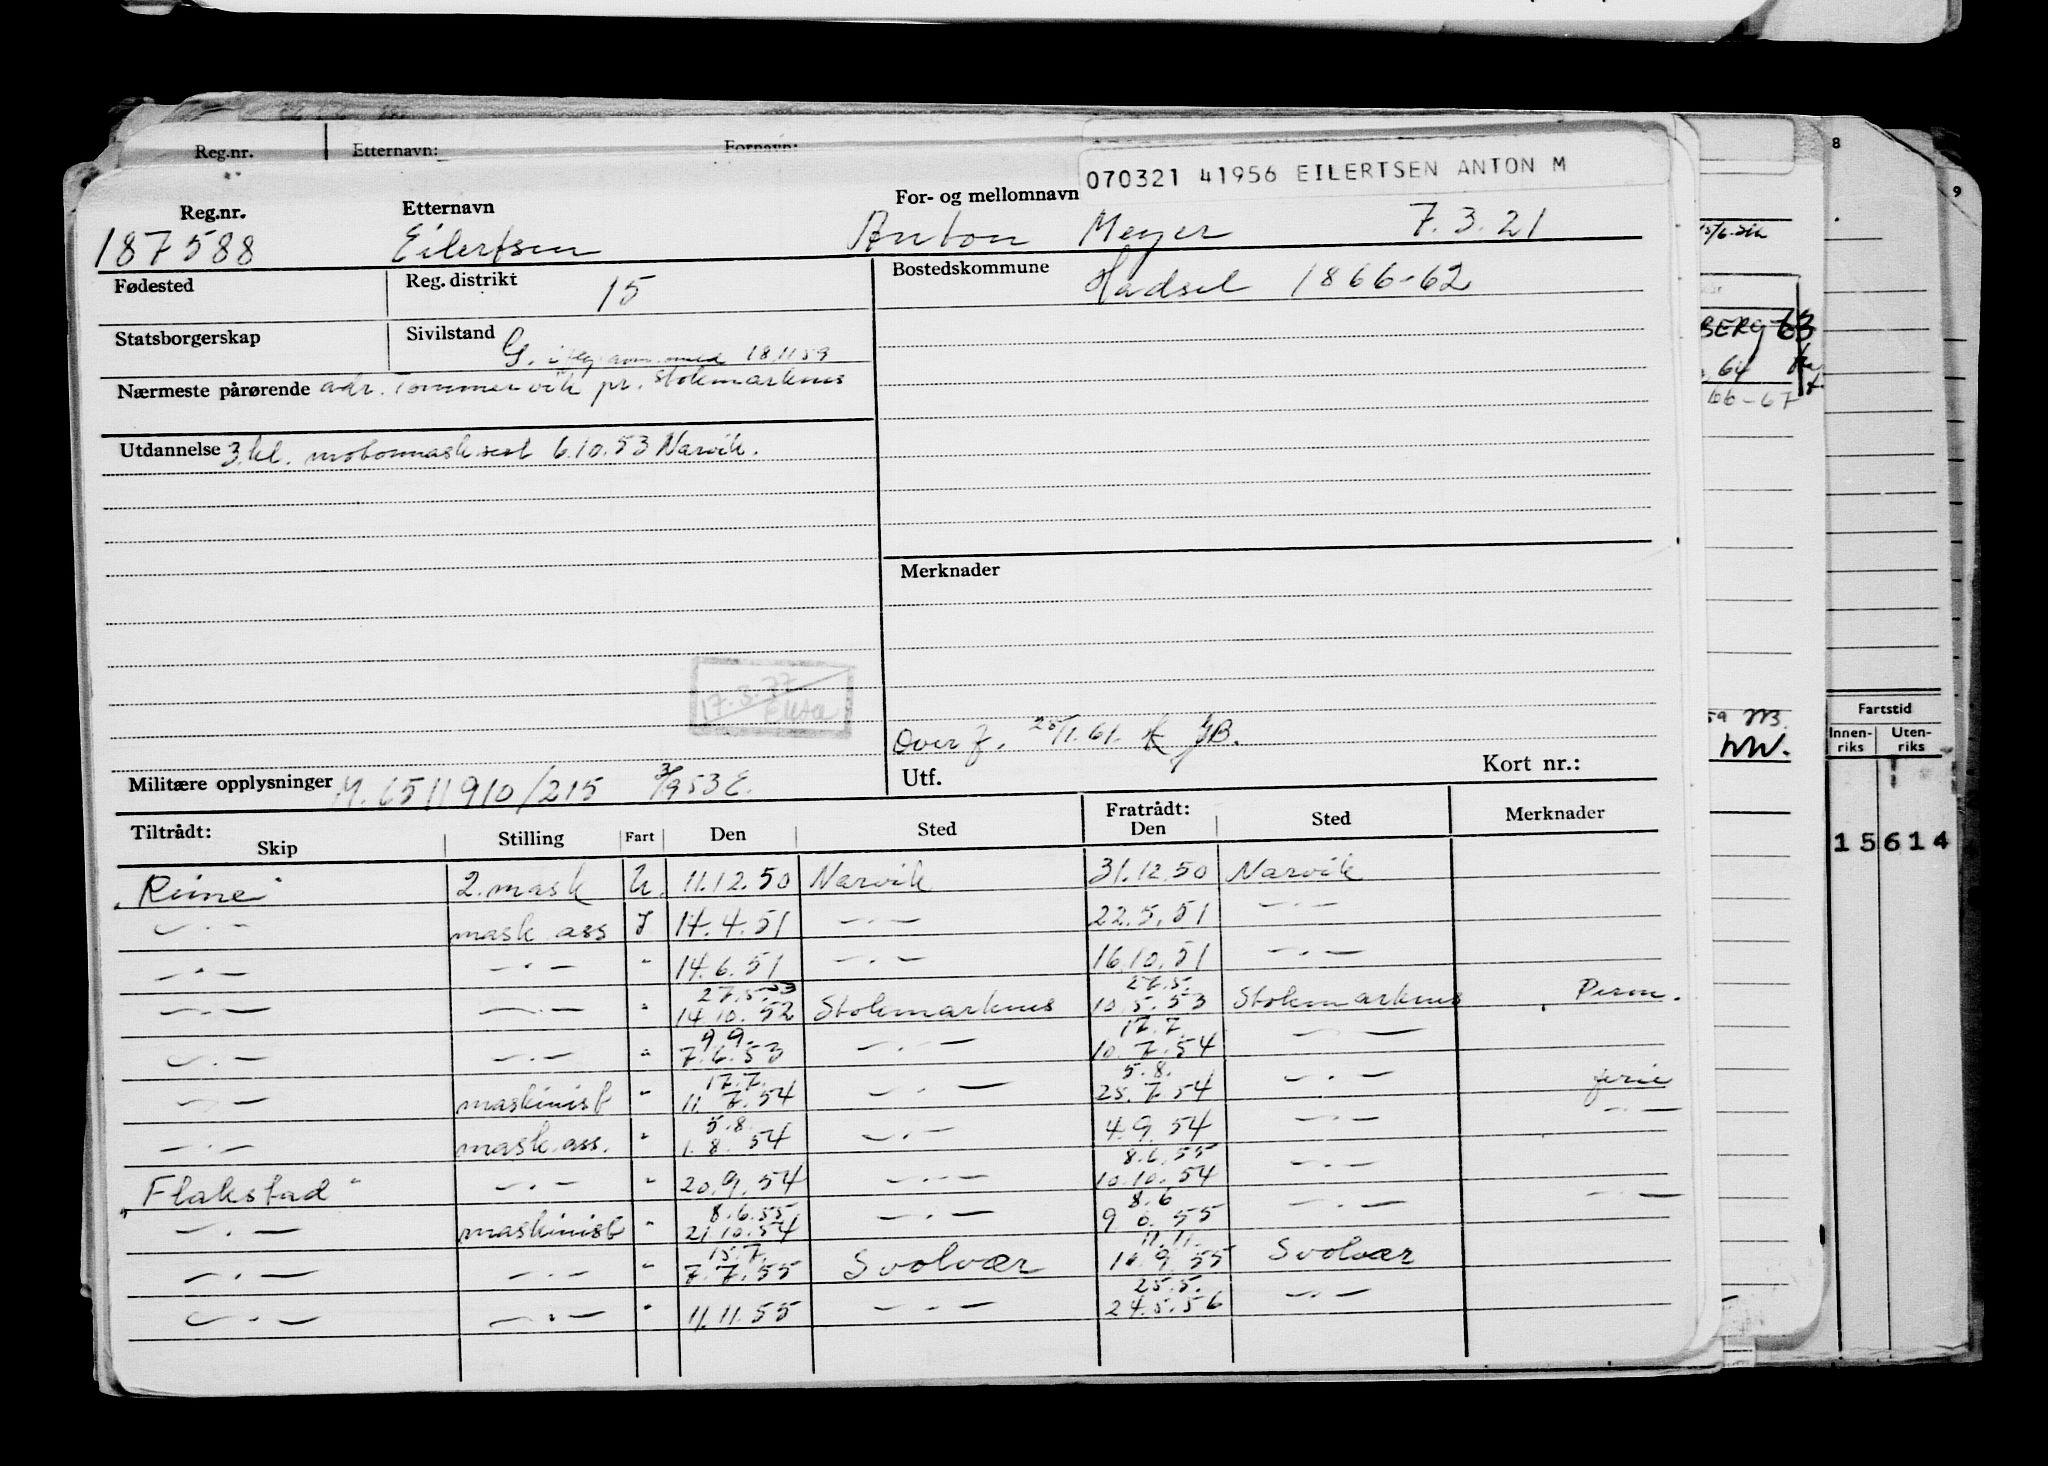 Reg.nr. Etternavn: Fornavn:
070321 41956 EILERTSEN ANTON M
Reg.nr. Etternavn For- og mellomnavn
187588 Eilertsen Anton Meyer 7.3.21
Fødested Reg. distrikt 15 Bostedskommune Hadsel 1866-62
Statsborgerskap Sivilstand G. 18/11 59
Nærmeste pårørende adr. Tommervik pr. Stokmarknes
Utdannelse 3.kl. motormask.sert 6.10.53 Narvik.
Merknader
17.3.77
Overf. 25/1.61. JB.
Militære opplysninger M. 6511910/215 3/9 53 E. Utf. Kort nr.:
Tiltrådt: Fratrådt:
Skip Stilling Fart Den Sted Den Sted Merknader
"Reine" 2. mask U. 11.12.50 Narvik 31.12.50 Narvik
— " — mask ass I 14.4.51 — " — 22.5.51 — " —
— " — — " — " 14.6.51 — " — 16.10.51 — " —
27.5.53 27.5.
— " — — " — " 14.10.52 Stokmarknes 10.5.53 Stokmarknes Perm.
9.9. 17.7.
— " — — " — " 7.6.53 — " — 10.7.54 — " —
17.7. 5.8.
— " — maskinist " 11.7.54 — " — 25.7.54 — " — ferie
5.8.
— " — mask. ass. " 1.8.54 — " — 4.9.54 — " — — " —
8.6.55
"Flakstad" — " — " 20.9.54 — " — 10.10.54 — " —
8.6.55 8.6
— " — maskinist " 21.10.54 — " — 9.6.55 — " — — " —
15.7. 11.11.
— " — — " — " 7.7.55 Svolvær 10.9.55 Svolvær
25.5.
— " — — " — " 11.11.55 — " — 24.5.56 — " —
8
9
BERG 63
64
66-67
Fartstid
Innen-riks Uten-riks
15 614